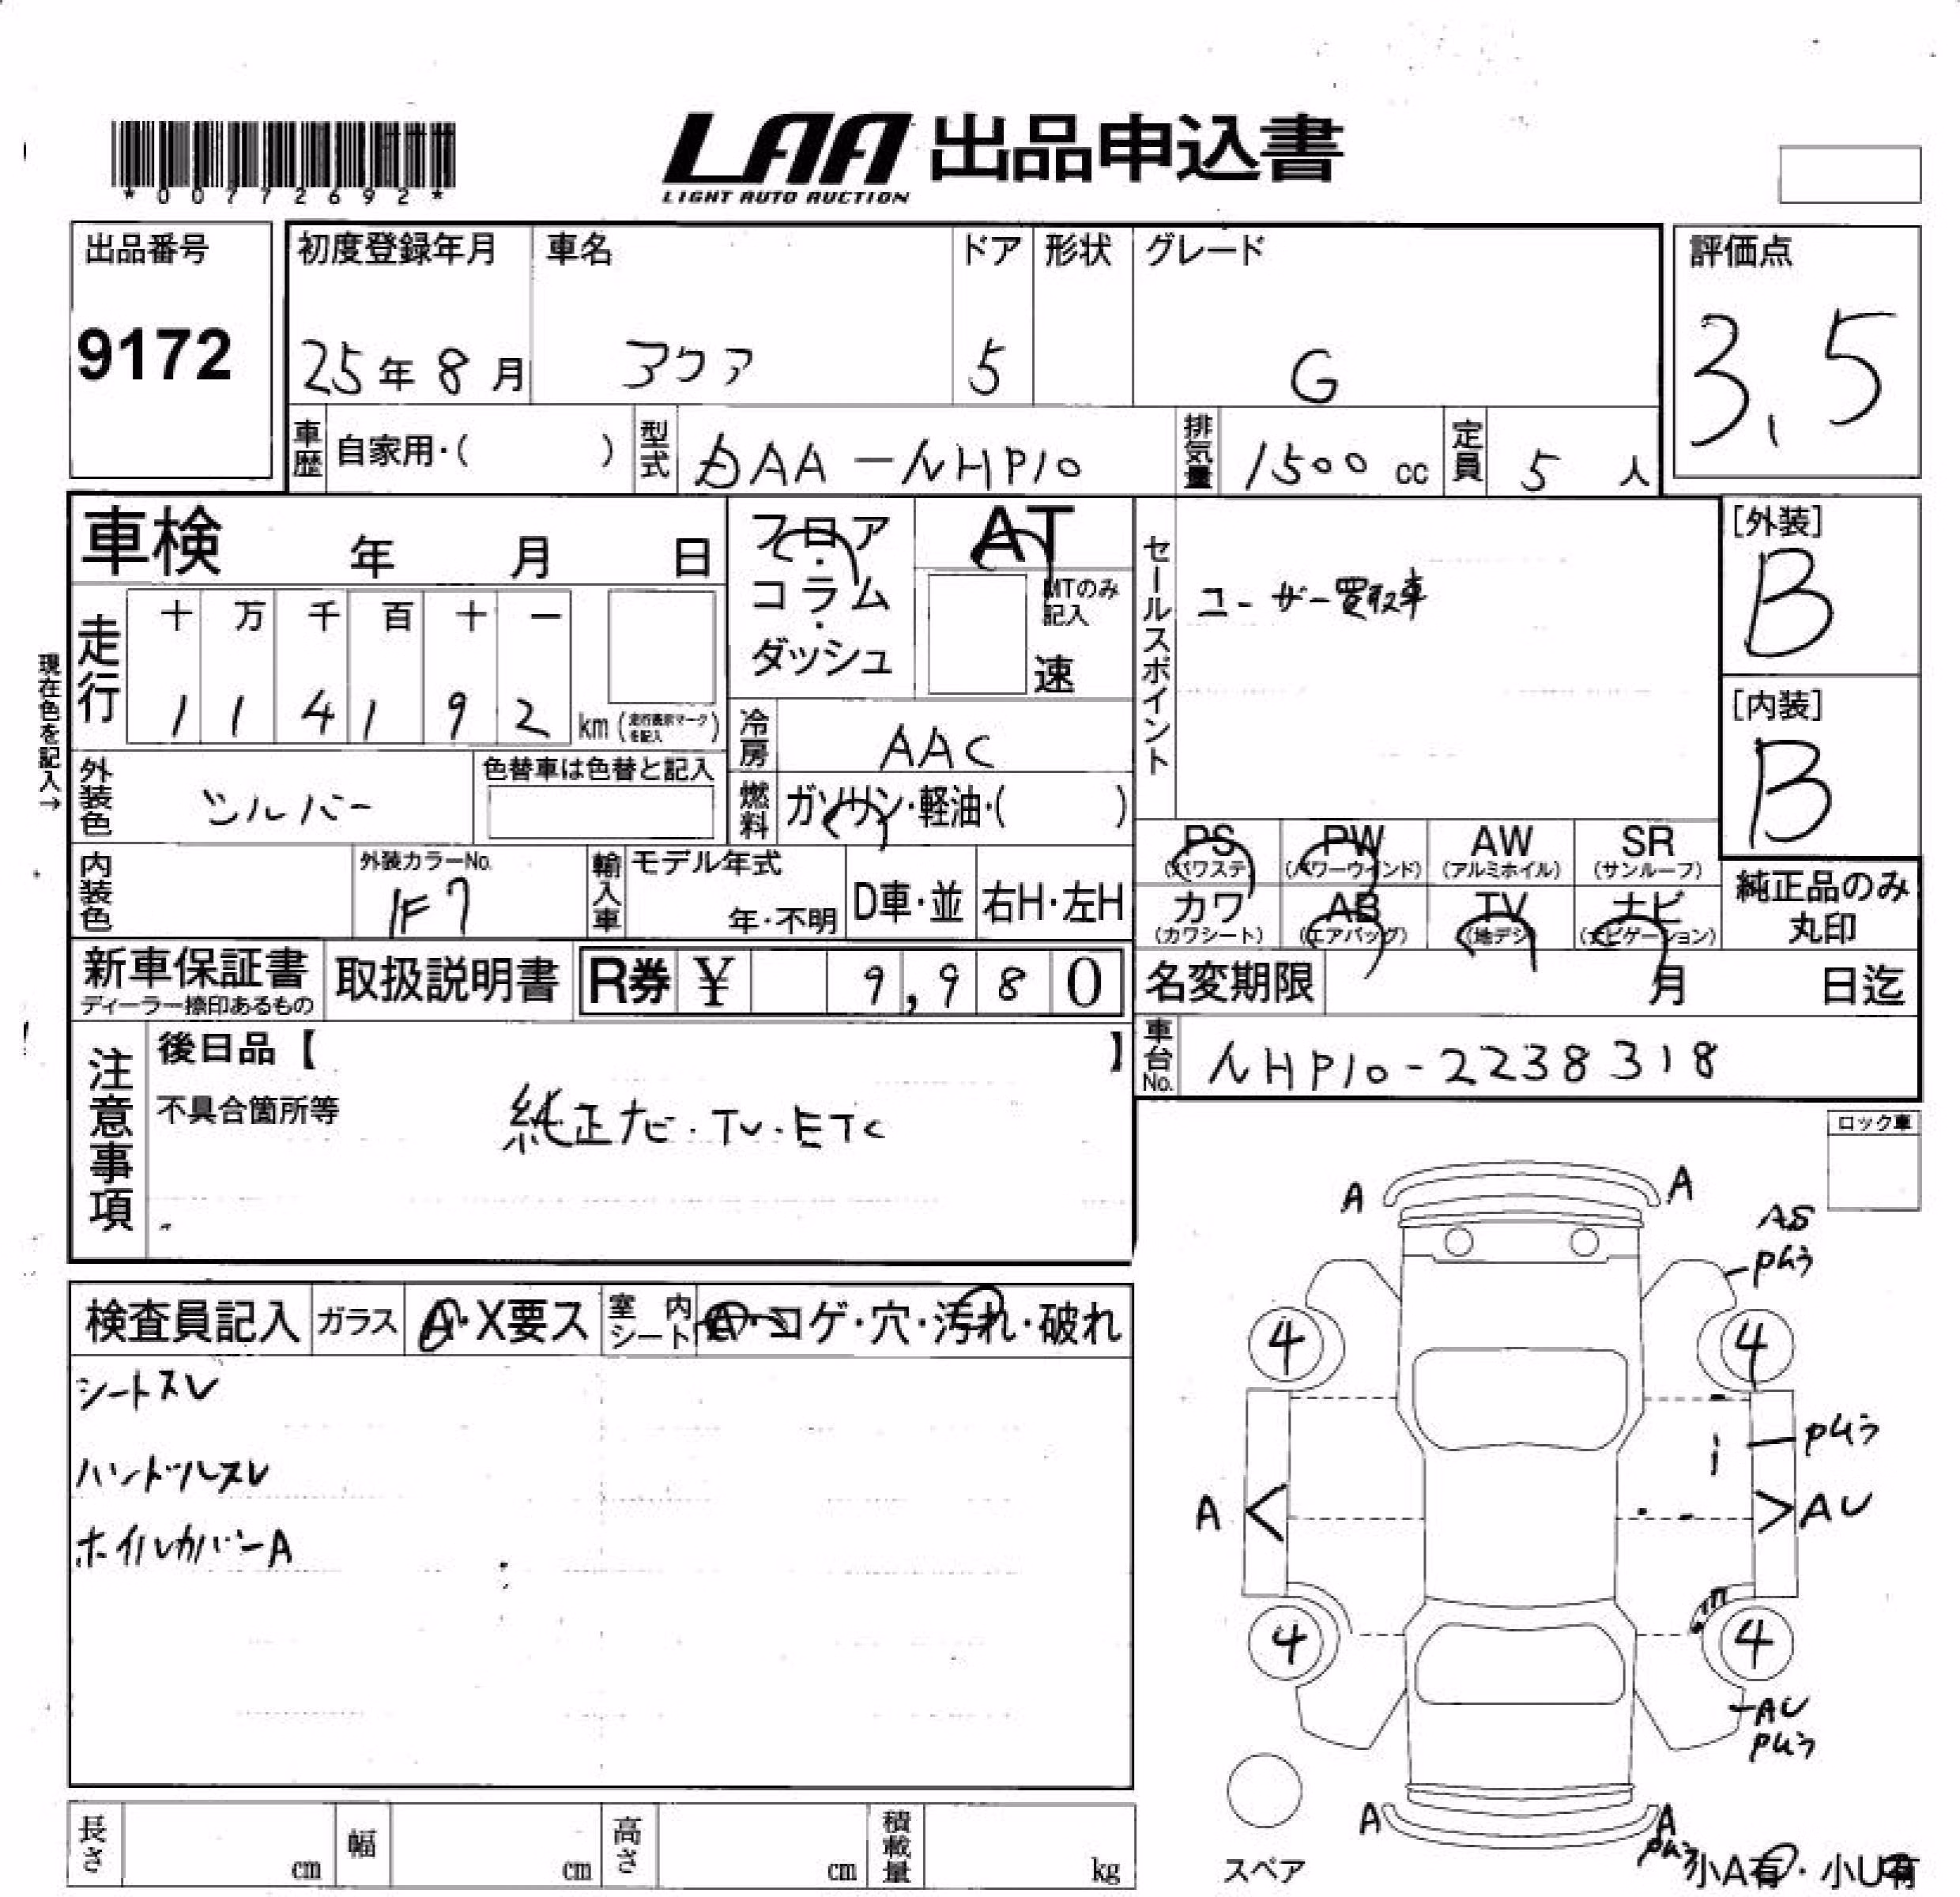 *00772692*
LAA 出品申込書
LIGHT AUTO AUCTION
出品番号
9172
初度登録年月
25年8月
車名
アクア
ドア
5
形状
グレード
G
評価点
3.5
車歴 自家用・( )
型式 DAA-NHP10
排気量 1500 cc
定員 5 人
車検 年 月 日
フロア・コラム・ダッシュ
AT
MTのみ記入
速
セールスポイント
ユーザー買取車
[外装]
B
[内装]
B
現在色を記入→
走行
十 万 千 百 十 一
1 1 4 1 9 2 km (走行表示マークを記入)
冷房 AAC
燃料 ガソリン・軽油・( )
外装色 シルバー
色替車は色替と記入
内装色
外装カラーNo.
1F7
輸入車
モデル年式
年・不明
D車・並
右H・左H
PS (パワステ)
PW (パワーウインド)
AW (アルミホイル)
SR (サンルーフ)
カワ (カワシート)
AB (エアバッグ)
TV (地デジ)
ナビ (ナビゲーション)
純正品のみ丸印
新車保証書
ディーラー捺印あるもの
取扱説明書
R券 ¥ 9,980
名変期限 月 日迄
車台No. NHP10-2238318
注意事項
後日品【 】
不具合箇所等
純正ナビ・TV・ETC
ロック車
検査員記入
ガラス A・X要ス
室内シート A・コゲ・穴・汚れ・破れ
シートスレ
ハンドルスレ
ホイルカバーA
A A
AS
4 4
A AU
4 4
AU
A A
スペア
小A有・小U有
長さ cm
幅 cm
高さ cm
積載量 kg